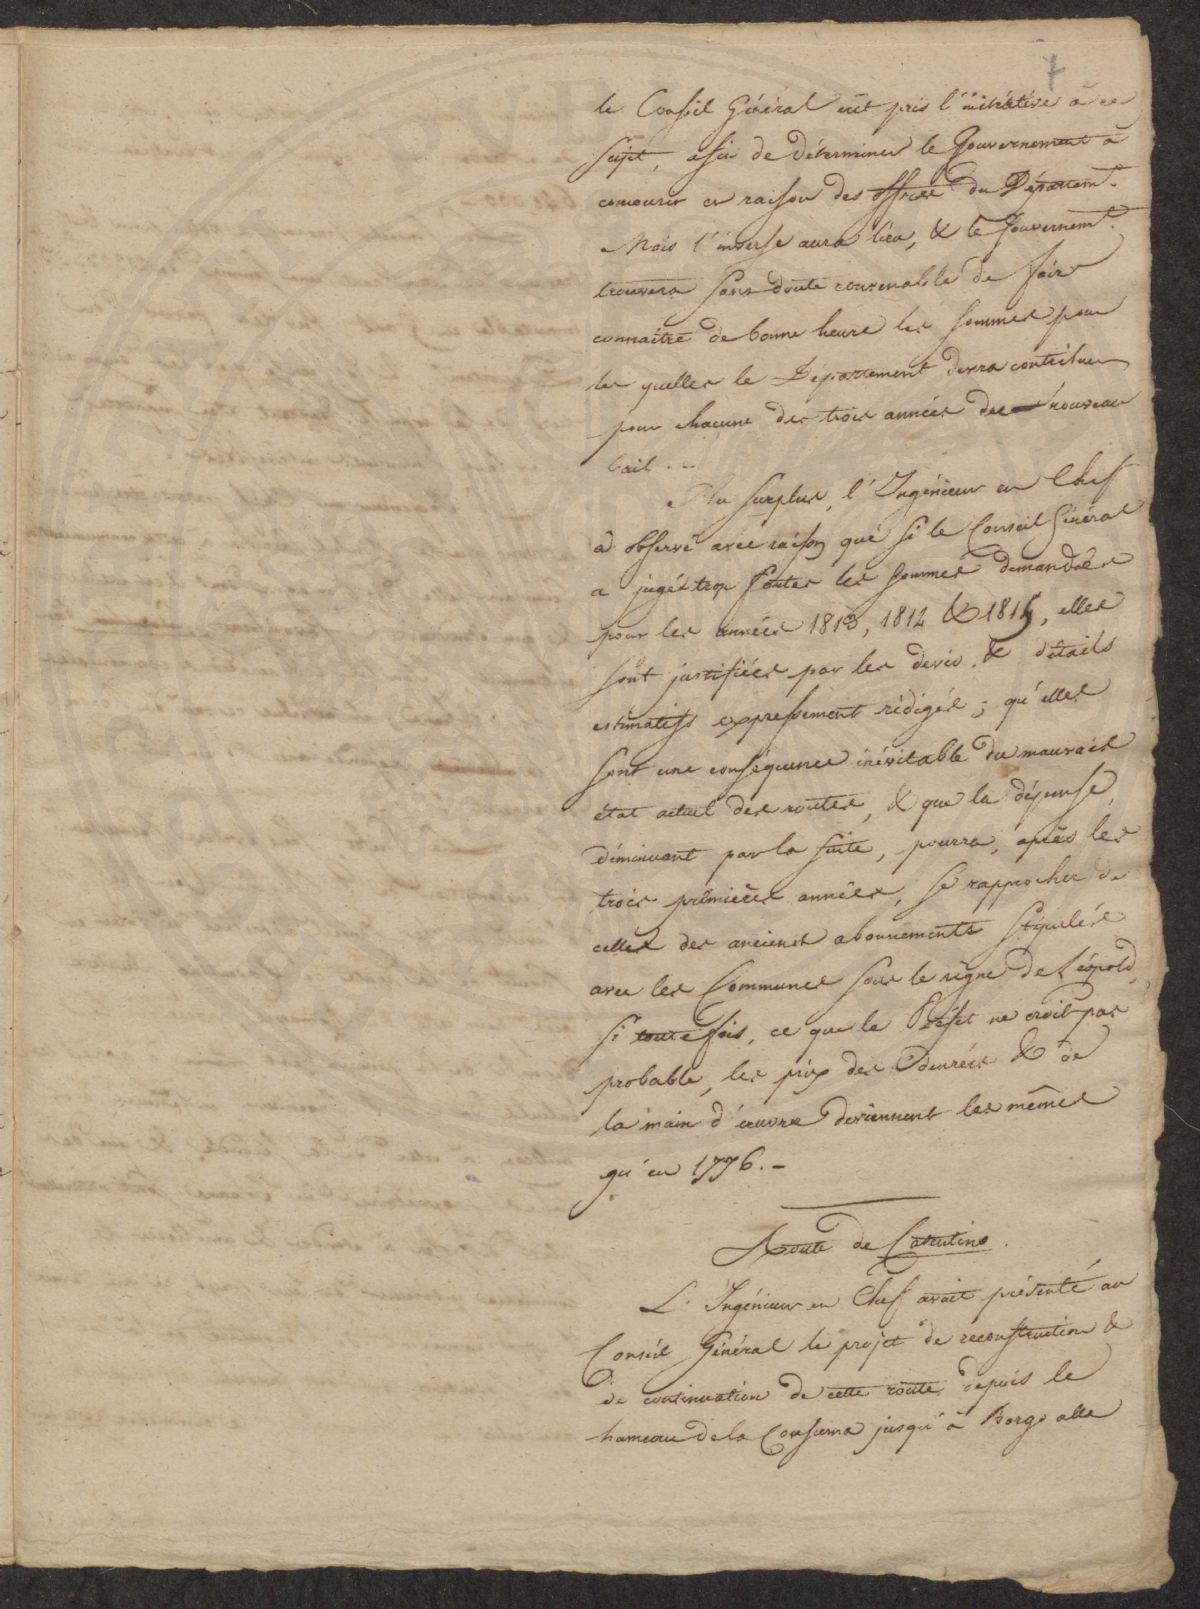 7
le Conseil Général eût pris l'initiative à ce
sujet, afin de déterminer le Gouvernement à
concourir en raison des offres du Départem.t
Mais l'inverse aura lieu, & le Gouvernem.t
trouvera sans doute convenable de faire
connaître de bonne heure les sommes pour
les quelles le Département devra contribuer
pour chacune des trois années du nouveau
bail...
Au surplus, l'Ingénieur en Chef
a observé avec raison que si le Conseil Général
a jugé trop fortes les sommes demandées
pour les années 1813, 1812 & 1815, elles
sont justifiées par les devis & détails
estimatifs expressément rédigés; qu'elles
sont une conséquence inévitable du mauvais
état actuel des routes, & que la dépense,
diminuant par la suite, pourra, après les
trois premières années, se rapprocher de
celles des anciens abonnements stipulés
avec les Communes sous le règne de Léopold,
si toute fois, ce que le Préfet ne croit pas
probable, les prix des denrées & de
la main d'œuvre deviennent les mêmes
qu'en 1776. -
Route de Casentino.
L'Ingénieur en Chef avait présenté au
Conseil Général le projet de reconstruction &
de continuation de cette route depuis le
hameau de la Consuma jusqu'à Borgo alla